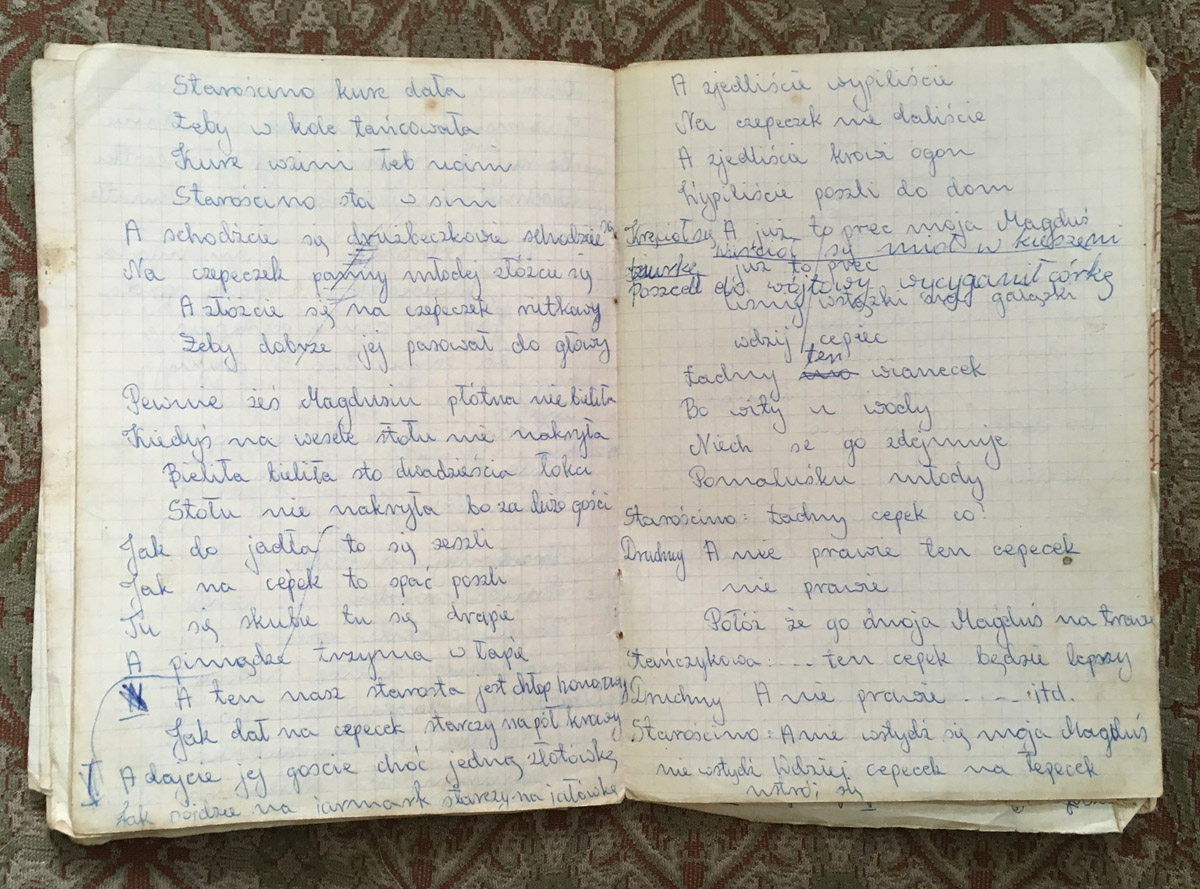 Starościno kurę dała
Żeby w kole tańcowała
Kurę weźmi łeb utnie
Starościno stoi w sini
A schodźcie się drużbeczkowie schodźcie się
Na czepeczek panny młodej złóżcie się
A złóżcie się na czepeczek rutkowy
Żeby dobrze jej pasował do głowy
Pewnie żeś Magdusiu płótna nie bieliła
Kiedyś na wesele stołu nie nakryła
Bieliła bieliła sto dwadzieścia łokci
Stołu nie nakryła bo za dużo gości
Jak do jadła to się zeszli
Jak na cepek to spać poszli
Tu się skubie tu się drapie
A piniądze trzyma w łapie
A ten nasz starosta jest chłop honorowy
Jak dał na cepecek starczy na pół krowy
A dajcie jej goście choć jedną złotówkę
Jak pójdzie na jarmark starczy na jałówkę
A zjedliście wypiliście
Na czepeczek nie daliście
A zjedliście krowi ogon
Wypiliście poszli do dom
A już to prec moja Magduś
się miał w kieszeni
już to prec
Poszedł do wójtowy wycyganił córkę
wstążki gałązki
wdzij cepiec
Ładny ten wianecek
Bo wity u wody
Niech se go zdejmuje
Pomaluśku młody
Starościno: Ładny cepek co?
Druchny A nie prawie ten cepecek
nie prawie
Połóż że go moja Magduś na trawie
Stańczykowa: .... ten cepek będzie lepszy
Druchny A nie prawie .... itd.
Starościno: A nie wstydź się moja Magduś
nie wstydź Wdziej cepecek na łepecek
ustrój się